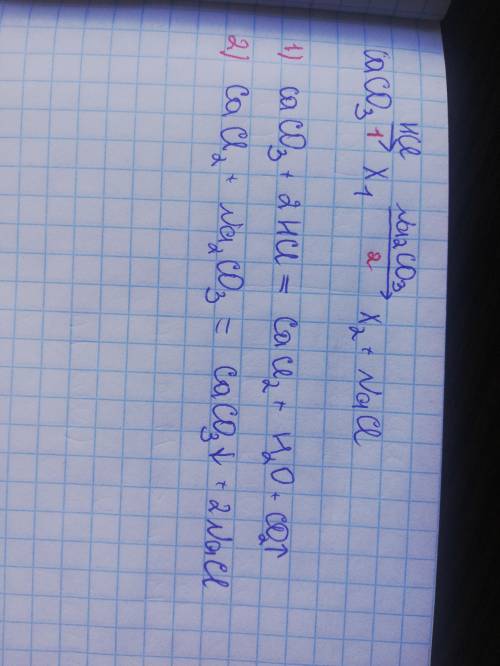 CaCO₃ —HCl→ 1 X₁ —Na₂CO₃→ 2 X₂ + NaCl
1) CaCO₃ + 2HCl = CaCl₂ + H₂O + CO₂↑
2) CaCl₂ + Na₂CO₃ = CaCO₃↓ + 2NaCl